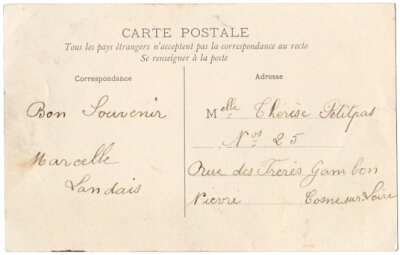 CARTE POSTALE
Tous les pays étrangers n'acceptent pas la correspondance au recto
Se renseigner à la poste
Correspondance
Bon Souvenir
Marcelle
Landais
Adresse
Melle Thérèse Petitpas
Nos 25
Rue des Frères Gambon
Nièvre Cosne-sur-Loire